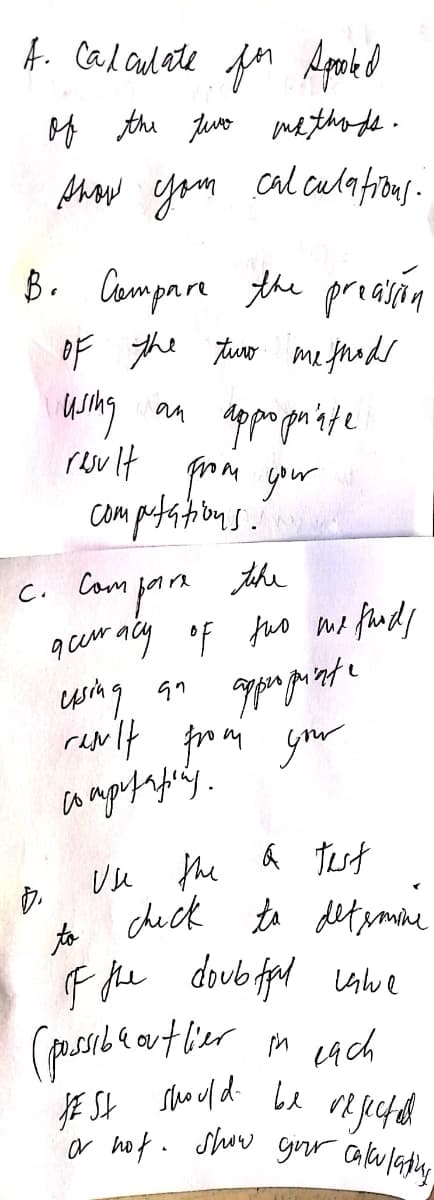 A. Calculate for Spooled
of the two methods.
Show your calculations.
B. Compare the precision
OF the two methods
using an appropriate
result from your
computations.
C. Compare the
accuracy of two methods
using an appropriate
result from your
computations.
D. Use the Q Test
to check to determine
IF the doubtful value
(possible outlier in each
TEST should be rejected
or not. Show your calculations